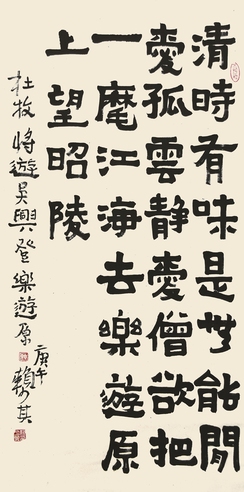 清時有味是無能閒
愛孤雲靜愛僧欲把
一麾江海去樂遊原
上望昭陵
杜牧將遊吳興登樂遊原
庚午賴少其